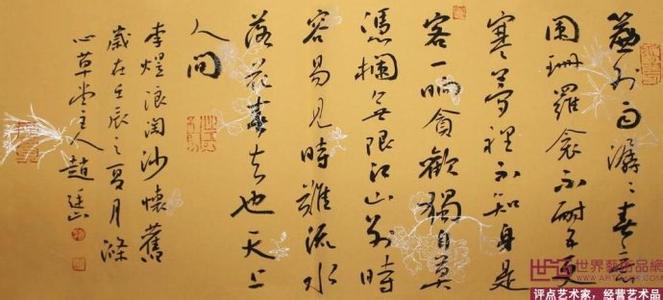 簾外雨潺々春意
闌珊羅衾不耐五更
寒夢裡不知身是
客一晌貪歡獨自莫
憑欄無限江山別時
容易見時難流水
落花春去也天上
人间
李煜浪淘沙懷舊
歲在壬辰之夏月滌
心草堂主人趙
世界藝術品網
评点艺术家，经营艺术品